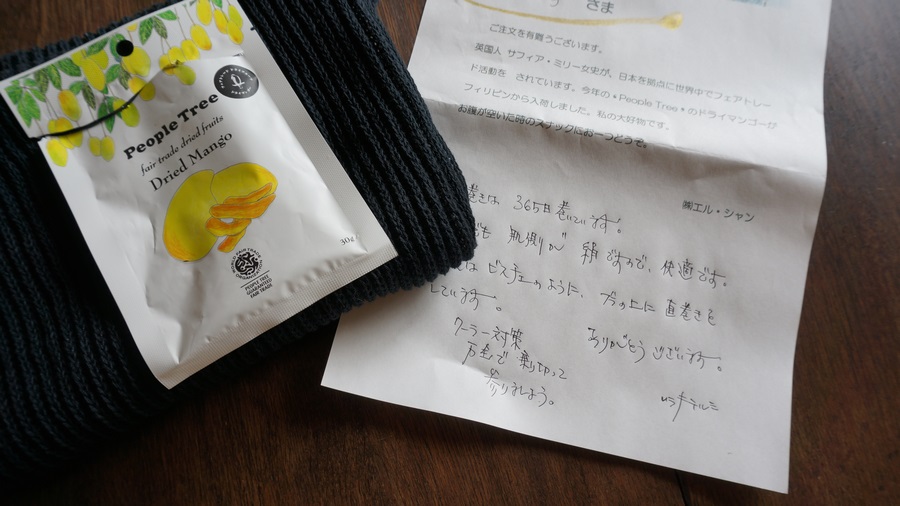 People Tree
fair trade dried fruits
Dried Mango
30g
WORLD FAIR TRADE
ORGANIZATION
PEOPLE TREE
GUARANTEED
FAIR TRADE
さま
ご注文を有難うございます。
英国人 サフィア・ミリー女史が、日本を拠点に世界中でフェアトレー
ド活動を されています。今年の *People Tree* のドライマンゴーが
フィリピンから入荷しました。私の大好物です。
お腹が空いた時のスナックにお一つどうぞ。
㈱エル・シャン
巻きは 365日巻いています。
も 肌側が 絹ですので、快適です。
は ビスチェのように、 の上に 直巻きを
しています。
クーラー対策
万全で 乗り切って
参りましょう。
ありがとう ございます。